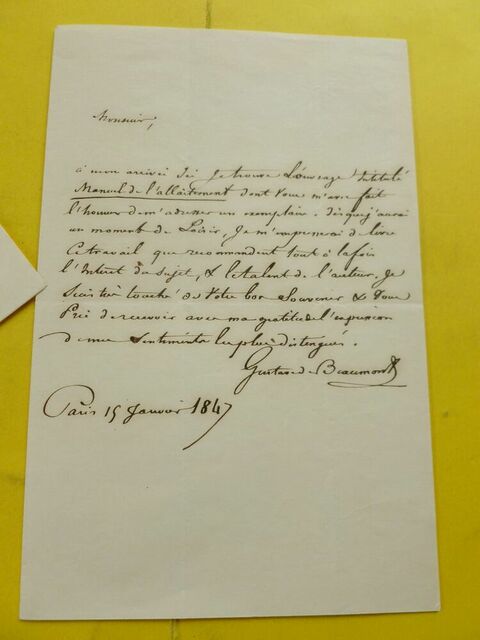 Monsieur,
à mon arrivée ici je trouve l'ouvrage intitulé
Manuel de l'allaitement dont vous m'avez fait
l'honneur de m'adresser un exemplaire. dès que j'aurai
un moment de loisir, je m'empresserai de lire
ce travail que recommandent tout à la fois
l'intérêt du sujet, & le talent de l'auteur, je
suis très touché de votre bon souvenir & vous
prie de recevoir avec ma gratitude l'expression
de mes sentiments les plus distingués.
Gustave de Beaumont
Paris 15 Janvier 1847